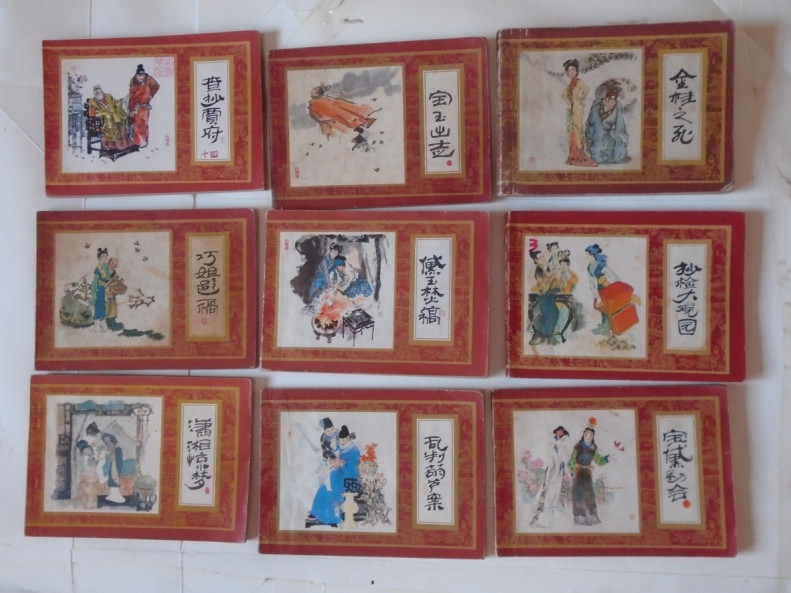 查抄贾府
十四
宝玉出走
金桂之死
巧姐避祸
黛玉焚稿
3
抄检大观园
潇湘惊梦
乱判葫芦案
宝黛初会